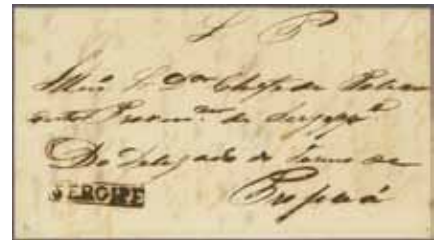 S P
Illmo Sr Dor Chefe de Policia
desta Provincia de Sergipe
Do Delegado do Termo de
SERGIPE Propriá